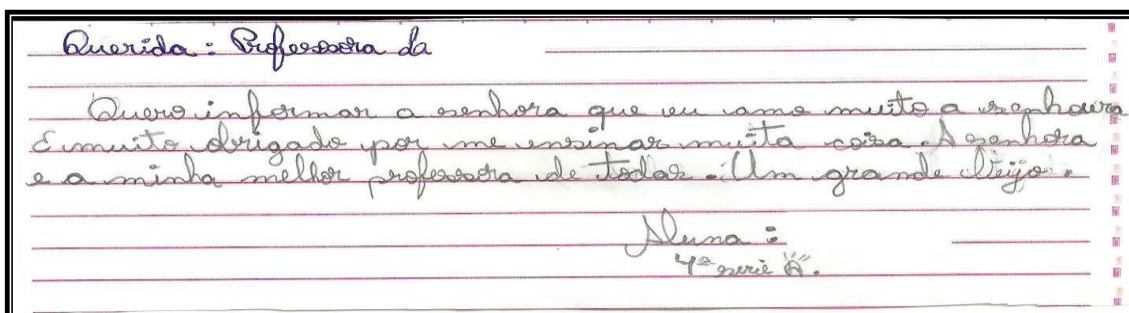 Querida: Professora da
Quero informar a senhora que eu amo muito a senhora
E muito obrigado por me ensinar muita coisa. A senhora
e a minha melhor professora de todas. Um grande beijo.
Aluna:
4ª serie "A".